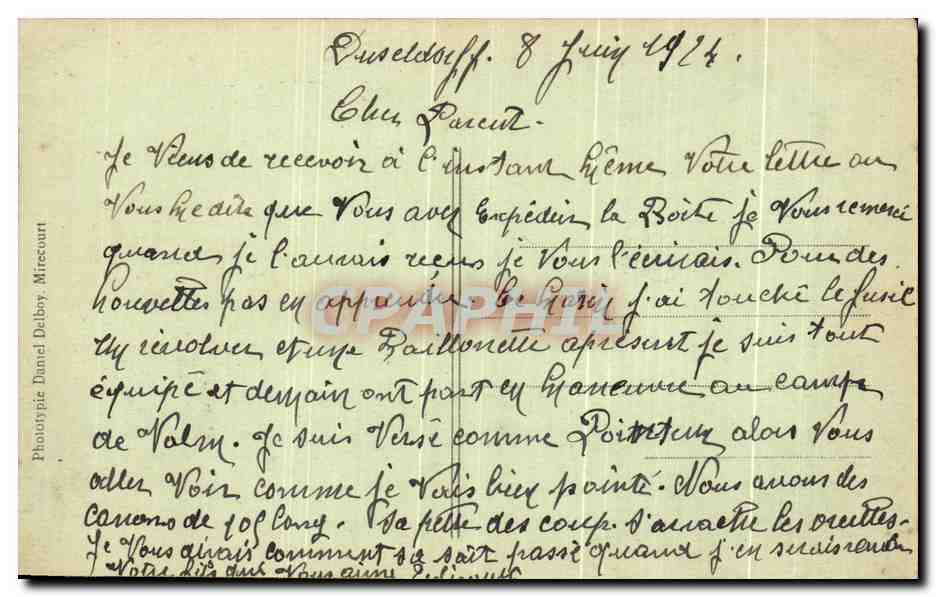 Duseldorff. 8 Juin 1924.
Cher Parent.
Je Viens de recevoir à l'instant même Votre lettre ou
Vous me dite que Vous avez Expédier la Boite je Vous remerci
quand je l'aurais reçus je Vous l'écirais. Pour des
nouvettes pas en apprendre. Ce matin j'ai touché le fusil
un révolver et une Baillonette apresent je suis tout
équipé et demain ont part en maneuvre au camp
de Valm. Je suis Versé comme Pointeur alors Vous
aller Voir comme je Vais bien pointé. Nous avons des
canons de 105 long. Sa pette des coup. S'arrache les oreilles.
Je Vous dirais comment sa sait passé quand j'en serais rendu
Votre fils que Vous aime
Phototypie Daniel Delboy, Mirecourt
CPAPHIL